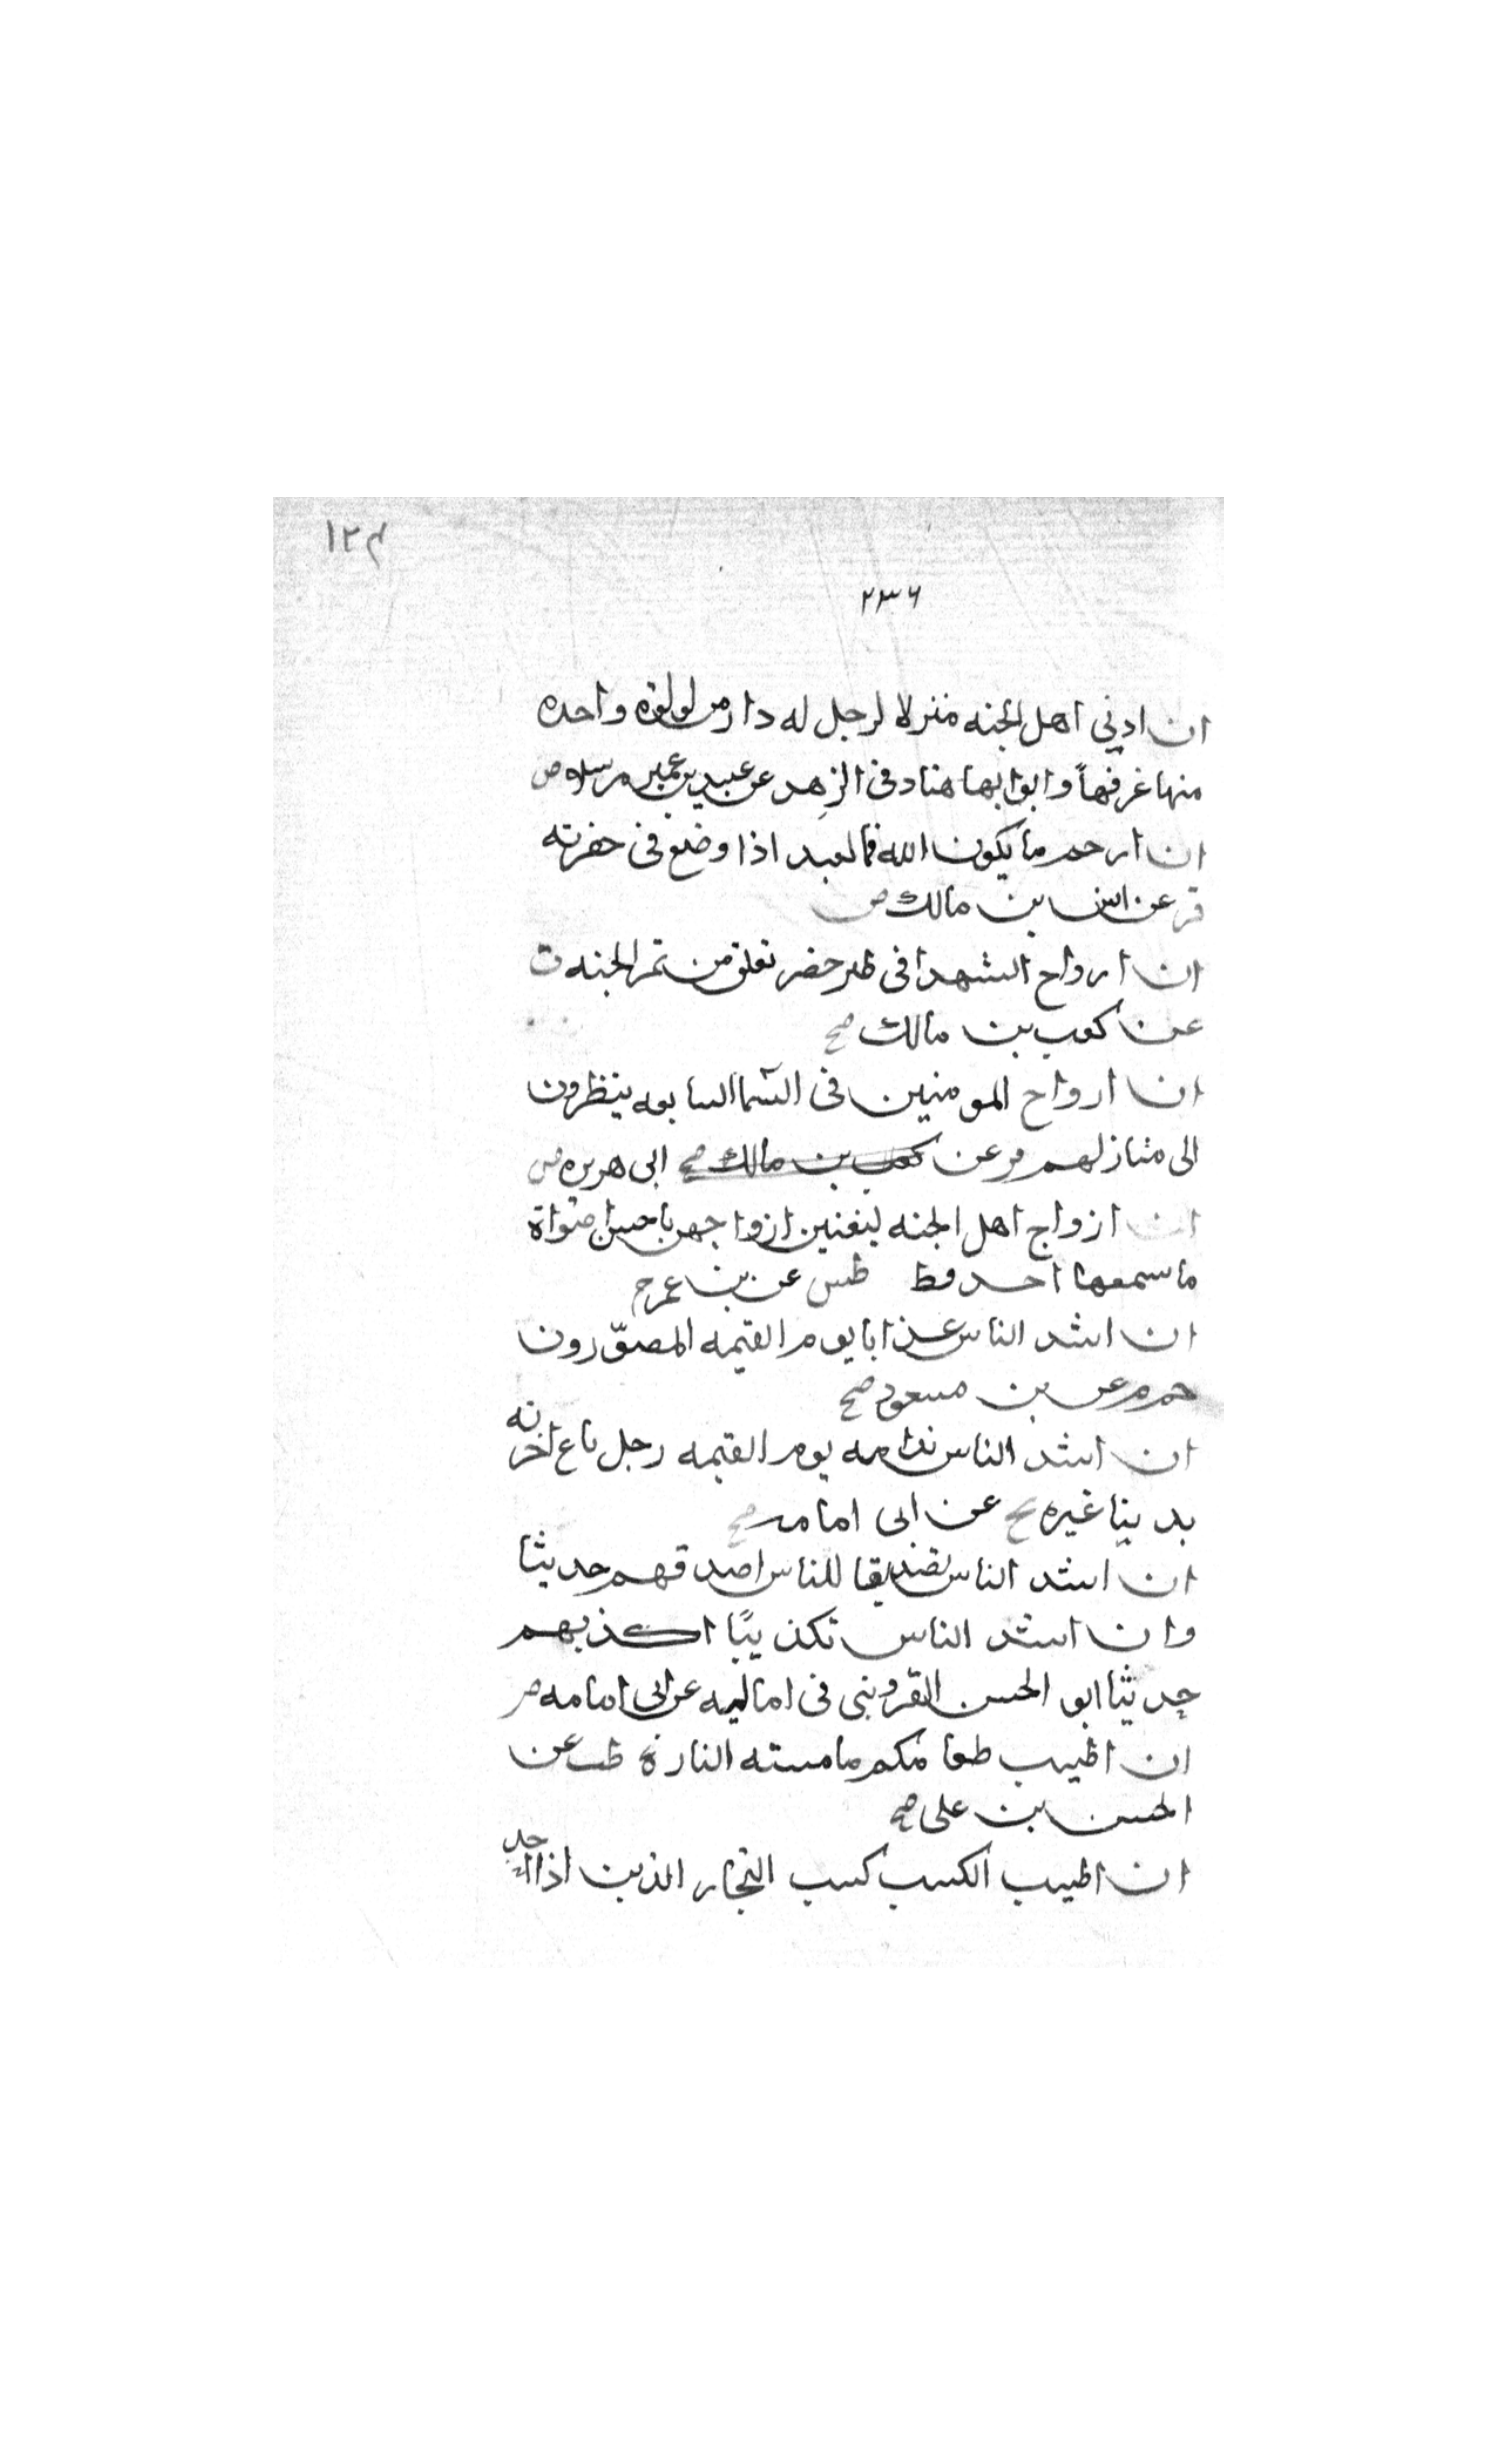 ١٢٤
٢٣٦
ان ادني اهل الجنه منزلا لرجل له دار من لولوة واحده
منها غرفهاً وابوابها هناد فى الزهد عن عبيد بن عمير مرسلا ض
ان ارحم ما يكون الله بالعبد اذا وضع فى حفرته
فر عن انس بن مالك ض
ان ارواح الشهدا فى طير خضر تعلق من ثمر الجنه ت
عن كعب بن مالك صح
ان ارواح المومنين فى السّما السابعه ينظرون
الى منازلهم فر عن كعب بن مالك صح ابى هريره ض
ان ازواج اهل الجنه ليغنين ازواجهن باحسن اصواة
ما سمعها احد قط طس عن بن عمر ح
ان اشد الناس عذابا يوم القيمه المصوّرون
حم م عن بن مسعود صح
ان اشد الناس ندامه يوم القيمه رجل باع اخرته
بدينا غيره تخ عن ابى امامه صح
ان اشد الناس تصديقا للناس اصدقهم حديثا
وان اشد الناس تكذيبًا اكذبهم
حديثا ابو الحسن القزوينى فى اماليه عن ابى امامه ض
ان اطيب طعامكم ما مسته النار ع طب عن
الحسن بن على صح
ان اطيب الكسب كسب التجار الذين اذا احد